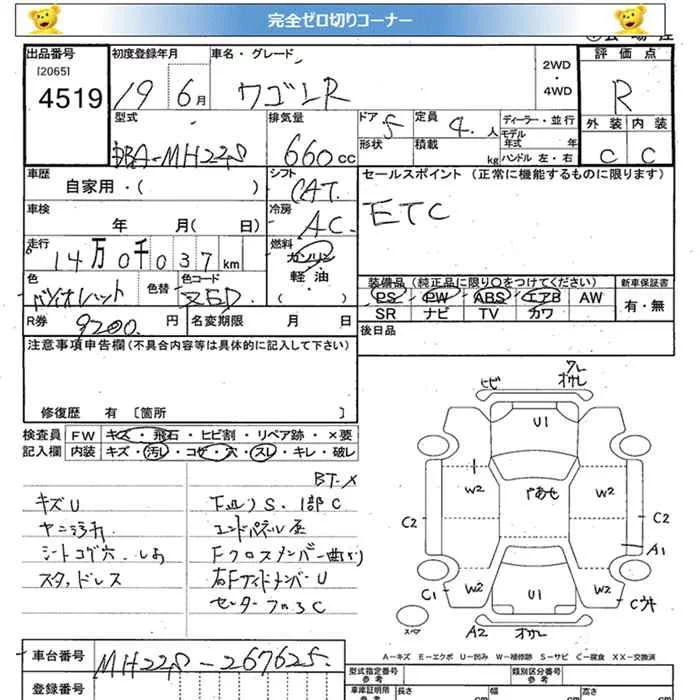 完全ゼロ切りコーナー
出品番号
[2065]
4519
初度登録年月
19 6月
車名・グレード
ワゴンR
2WD
・
4WD
評価点
R
外装 内装
C C
型式
DBA-MH22S
排気量
660cc
ドア 5
形状
定員 4.人
積載 kg
ディーラー・並行
モデル
年式 年
ハンドル 左・右
車歴
自家用・( )
シフト
CAT.
セールスポイント (正常に機能するものに限ります)
ETC
車検
年 月( 日)
冷房
AC
走行
14万0千037km
燃料
ガソリン
軽・油
( )
色
バイオレット
色替
色コード
ZED
装備品 (純正品に限り○をつけてください)
PS PW ABS エアB AW
SR ナビ TV カワ
新車保証書
有・無
R券 9200.円
名変期限 月 日
後日品
注意事項申告欄(不具合内容等は具体的に記入して下さい)
修復歴 有 〔箇所 〕
検査員
記入欄
FW キズ・飛石・ヒビ割・リペア跡・×要
内装 キズ・汚レ・コゲ・穴・スレ・キレ・破レ
BT-X
キズU
ヤニ汚れ
シートコゲ穴.しみ
スタッドレス
下廻りS.1部C
エンドパネル歪
Fクロスメンバー曲り
右FサイドメンバーU
センターフロアC
ヒビ
ワレ
オサレ
U1
W2
W2
C2
C2
A1
W2
W2
C1
U1
スペア
A2
オサレ
A-キズ E-エクボ U-凹み W-補修跡 S-サビ C-腐食 XX-交換済
車台番号
MH22S-267625.
登録番号
型式指定番号
参考
類別区分番号
参考
車庫証明用
参考
長さ cm
幅 cm
高さ cm